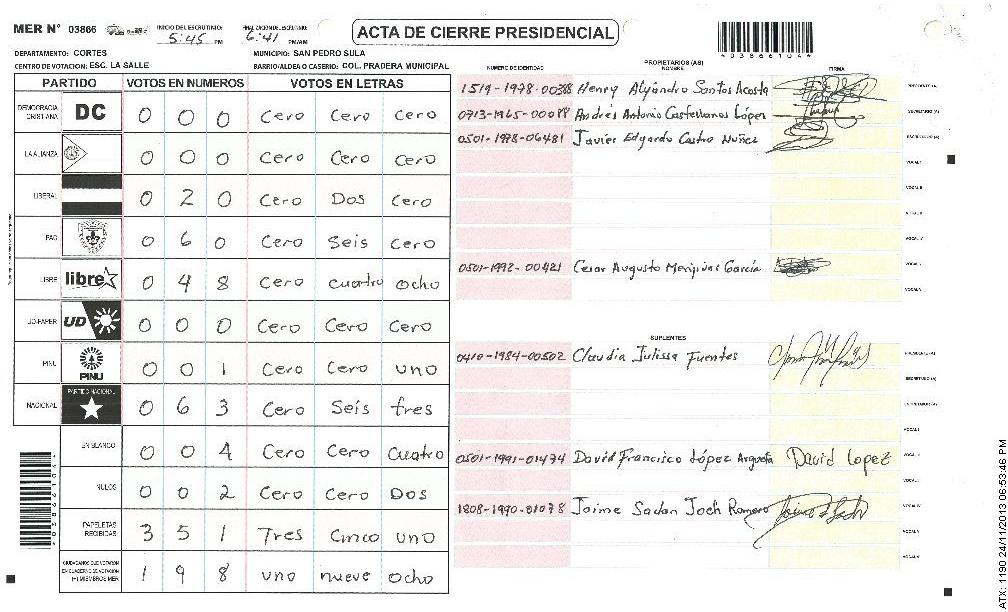 MER N° 03866
INICIO DEL ESCRUTINIO: 5:45 PM
FINALIZACION DEL ESCRUTINIO: 6:41 PM/AM
ACTA DE CIERRE PRESIDENCIAL
403866104
DEPARTAMENTO: CORTES
MUNICIPIO: SAN PEDRO SULA
CENTRO DE VOTACION: ESC. LA SALLE
BARRIO/ALDEA O CASERIO: COL. PRADERA MUNICIPAL
PARTIDO VOTOS EN NUMEROS VOTOS EN LETRAS
DEMOCRACIA CRISTIANA DC 0 0 0 Cero Cero Cero
LA ALIANZA 0 0 0 Cero Cero Cero
LIBERAL 0 2 0 Cero Dos Cero
PAC 0 6 0 Cero Seis Cero
LIBRE libre 0 4 8 Cero cuatro ocho
UD-FAPER UD 0 0 0 Cero Cero Cero
PINU PINU 0 0 1 Cero Cero uno
NACIONAL PARTIDO NACIONAL 0 6 3 Cero Seis tres
EN BLANCO 0 0 4 Cero Cero Cuatro
NULOS 0 0 2 Cero Cero Dos
PAPELETAS RECIBIDAS 3 5 1 Tres Cinco uno
CIUDADANOS QUE VOTARON EN CUADERNO DE VOTACION (+) MIEMBROS MER 1 9 8 uno nueve ocho
NUMERO DE IDENTIDAD
PROPIETARIOS (AS)
NOMBRE
FIRMA
1519-1978-00388 Henry Alejandro Santos Acosta PRESIDENTE (A)
0713-1965-00088 Andrés Antonio Castellanos López SECRETARIO (A)
0501-1978-06481 Javier Edgardo Castro Nuñez ESCRUTADOR (A)
VOCAL I
VOCAL II
VOCAL V
0501-1992-00421 Cesar Augusto Menjivar García
SUPLENTES
0410-1984-00502 Claudia Julissa Fuentes PRESIDENTE (A)
SECRETARIO (A)
ESCRUTADOR (A)
VOCAL I
0501-1991-01474 David Francisco López Argueta David Lopez
1808-1990-01078 Jaime Sadan Joch Romero
ATX: 1190 24/11/2013 06:53:46 PM